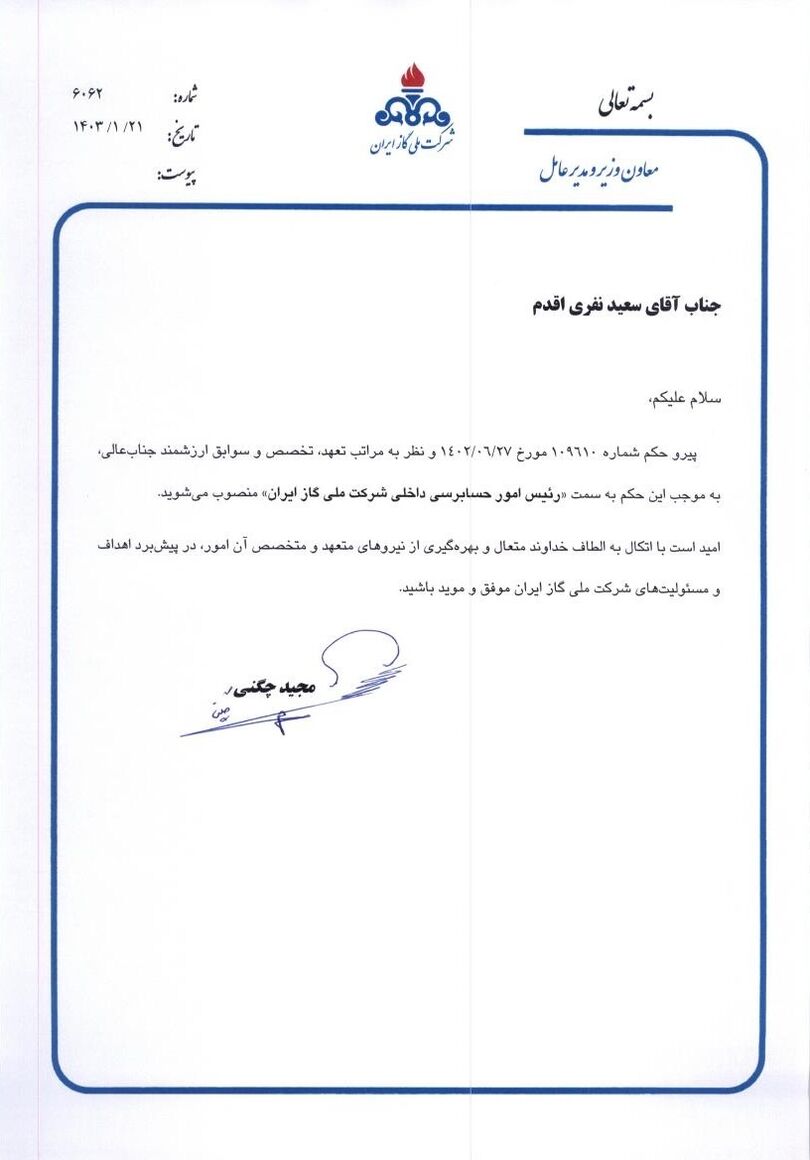 بسمه تعالی
معاون وزیر و مدیر عامل
شرکت ملی گاز ایران
شماره: ۶۰۶۲
تاریخ: ۱۴۰۳/۱/۲۱
پیوست:
جناب آقای سعید نفری اقدم
سلام علیکم،
پیرو حکم شماره ۱۰۹٦۱۰ مورخ ۱٤۰۲/۰٦/۲۷ و نظر به مراتب تعهد، تخصص و سوابق ارزشمند جناب‌عالی،
به موجب این حکم به سمت «رئیس امور حسابرسی داخلی شرکت ملی گاز ایران» منصوب می‌شوید.
امید است با اتکال به الطاف خداوند متعال و بهره‌گیری از نیروهای متعهد و متخصص آن امور، در پیش‌برد اهداف
و مسئولیت‌های شرکت ملی گاز ایران موفق و موید باشید.
مجید چگنی